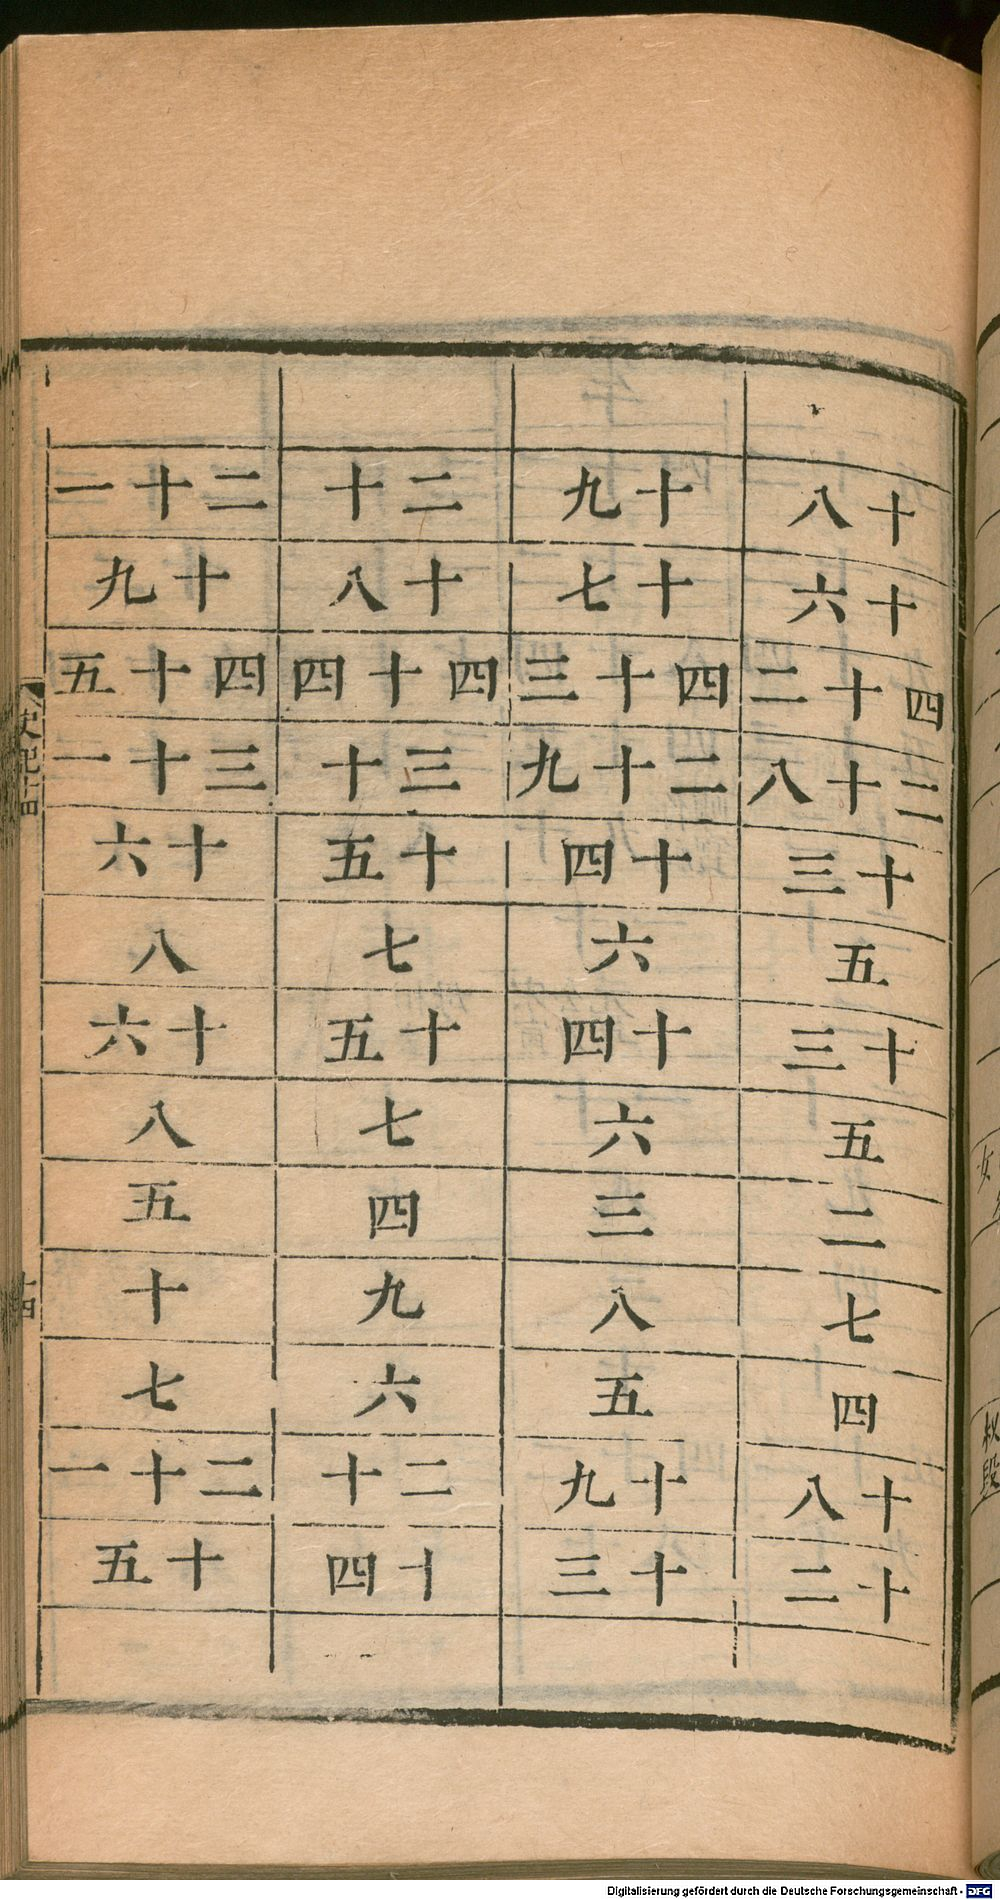 十八
十六
四十二
二十八
十三
五
十三
五
二
七
四
十八
十二
十九
十七
四十三
二十九
十四
六
十四
六
三
八
五
十九
十三
二十
十八
四十四
三十
十五
七
十五
七
四
九
六
二十
十四
二十一
十九
四十五
三十一
十六
八
十六
八
五
十
七
二十一
十五
叔段
Digitalisierung gefördert durch die Deutsche Forschungsgemeinschaft - DFG